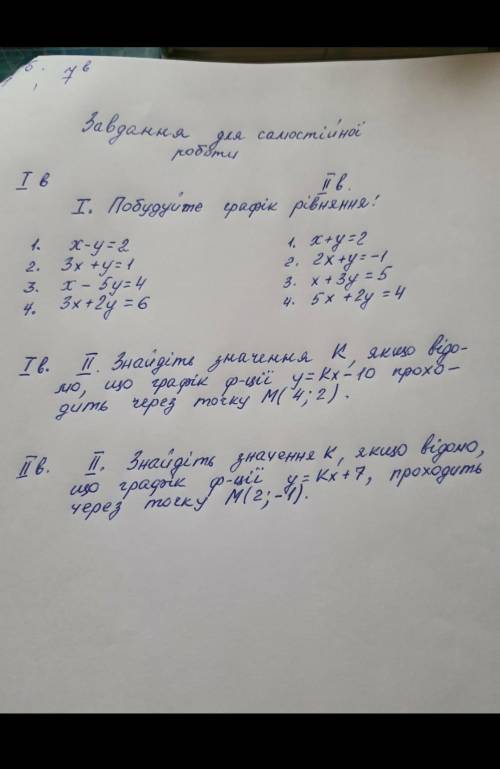 7 в
Завдання для самостійної
роботи
I в
II в.
I. Побудуйте графік рівняння:
1. x-y=2
2. 3x+y=1
3. x-5y=4
4. 3x+2y=6
1. x+y=2
2. 2x+y=-1
3. x+3y=5
4. 5x+2y=4
I в. II. Знайдіть значення К, якщо відо-
мо, що графік ф-ції y=Kx-10 прохо-
дить через точку М(4;2).
II в. II. Знайдіть значення К, якщо відомо,
що графік ф-ції y=Kx+7, проходить
через точку М(2;-1).